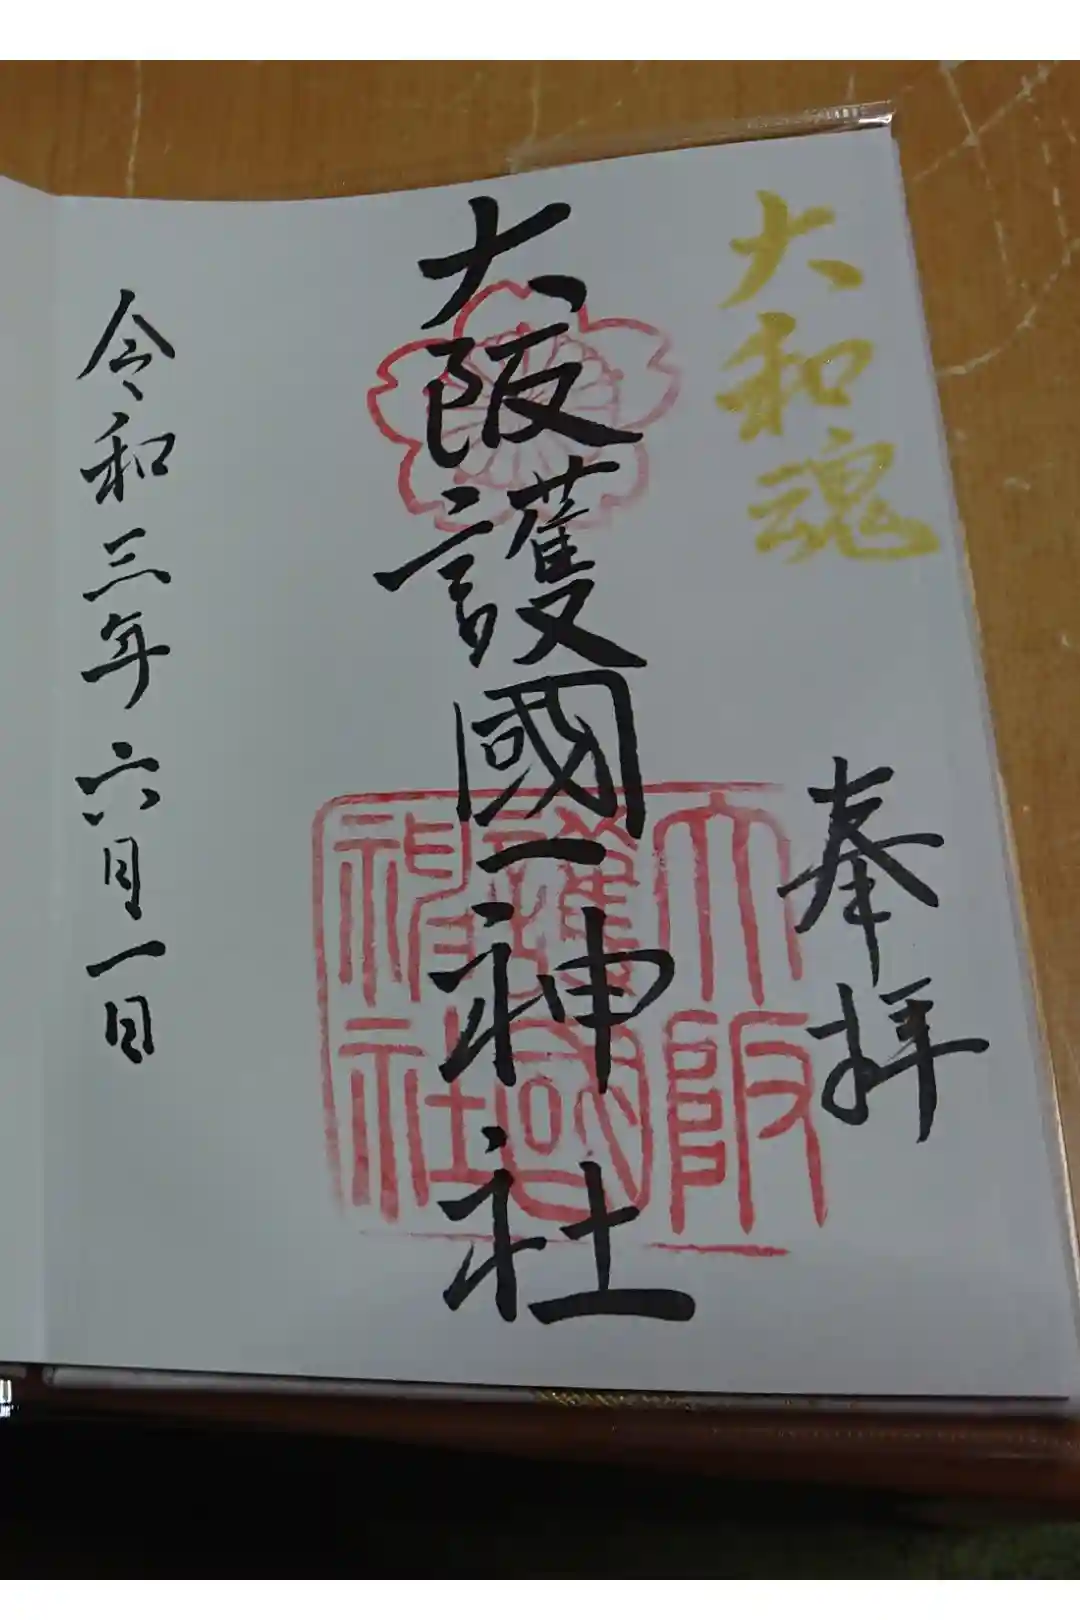 大和魂
奉拝
大阪護國神社
大阪護國神社
令和三年六月一日